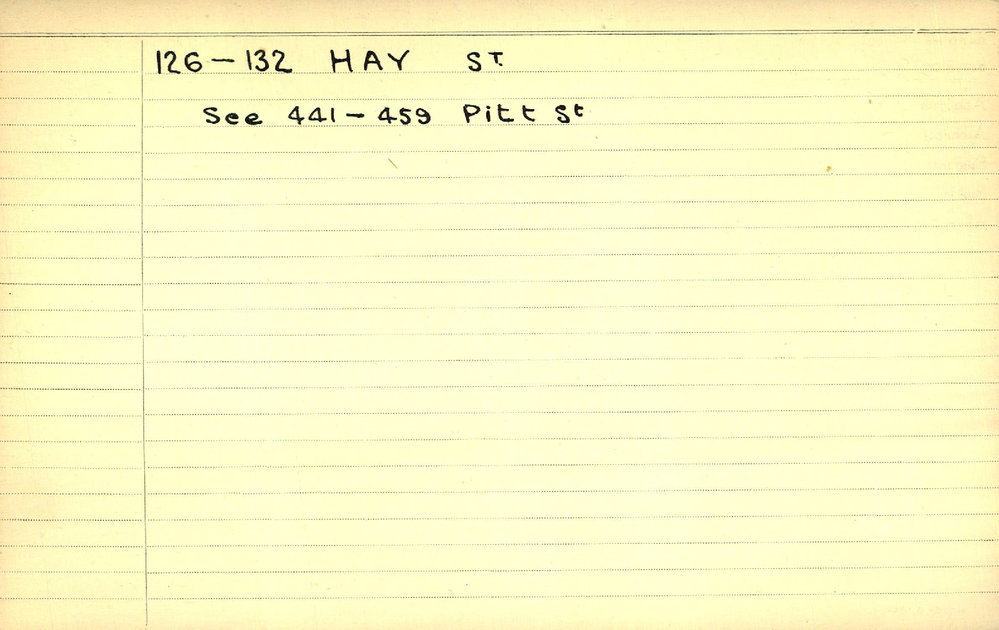 126-132 HAY ST.
See 441-459 Pitt St